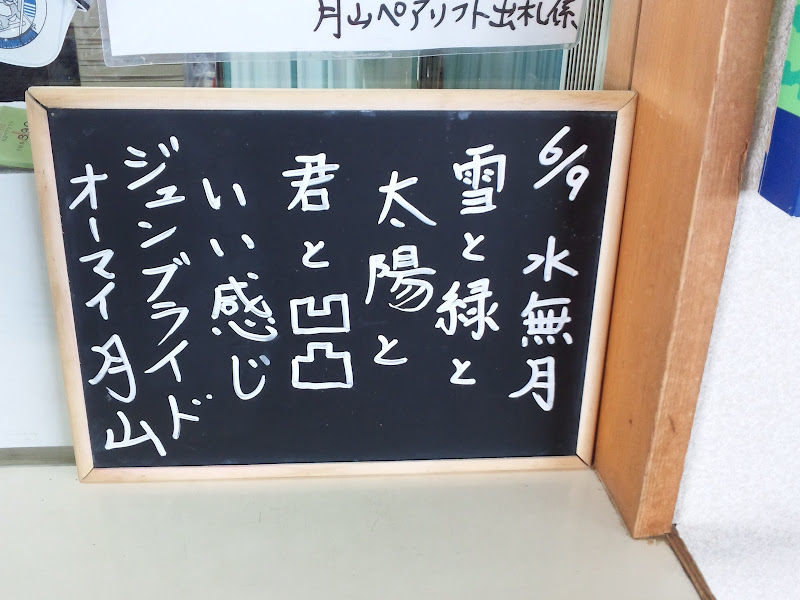 月山ペアリフト出札係
6/9 水無月
雪と緑と
太陽と
君と凹凸
いい感じ
ジュンブライド
オーマイ月山